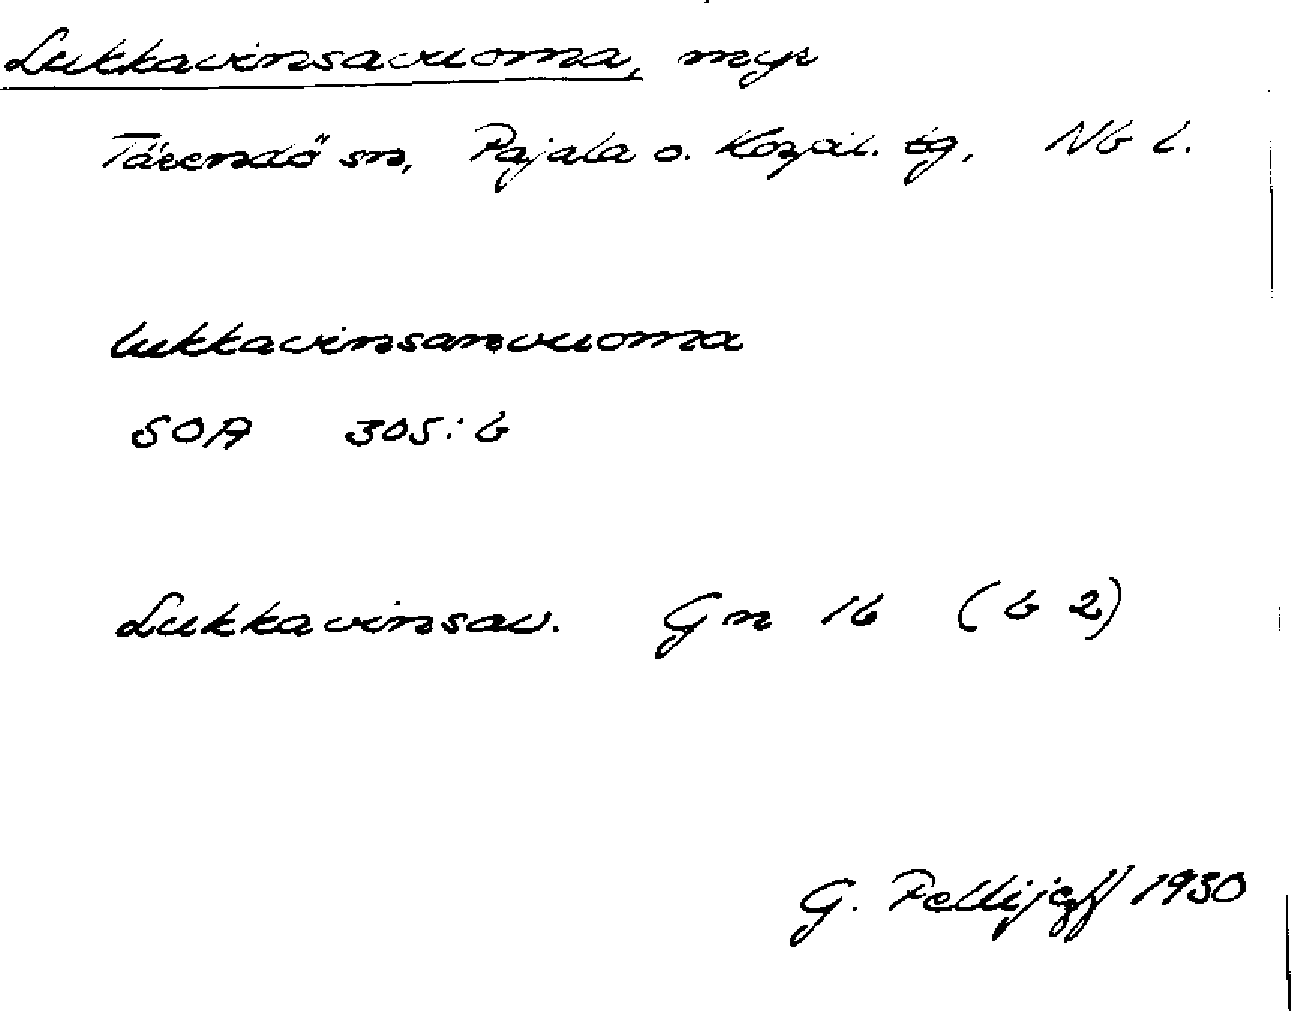 Lukkavinsavuoma, myr
Tärendö sn, Pajala o. Korpil. tg, Nb l.
lukkavinsanvuoma
SOA 305:6
Lukkavinsav. Gn 16 (b 2)
G. Pellijeff 1930